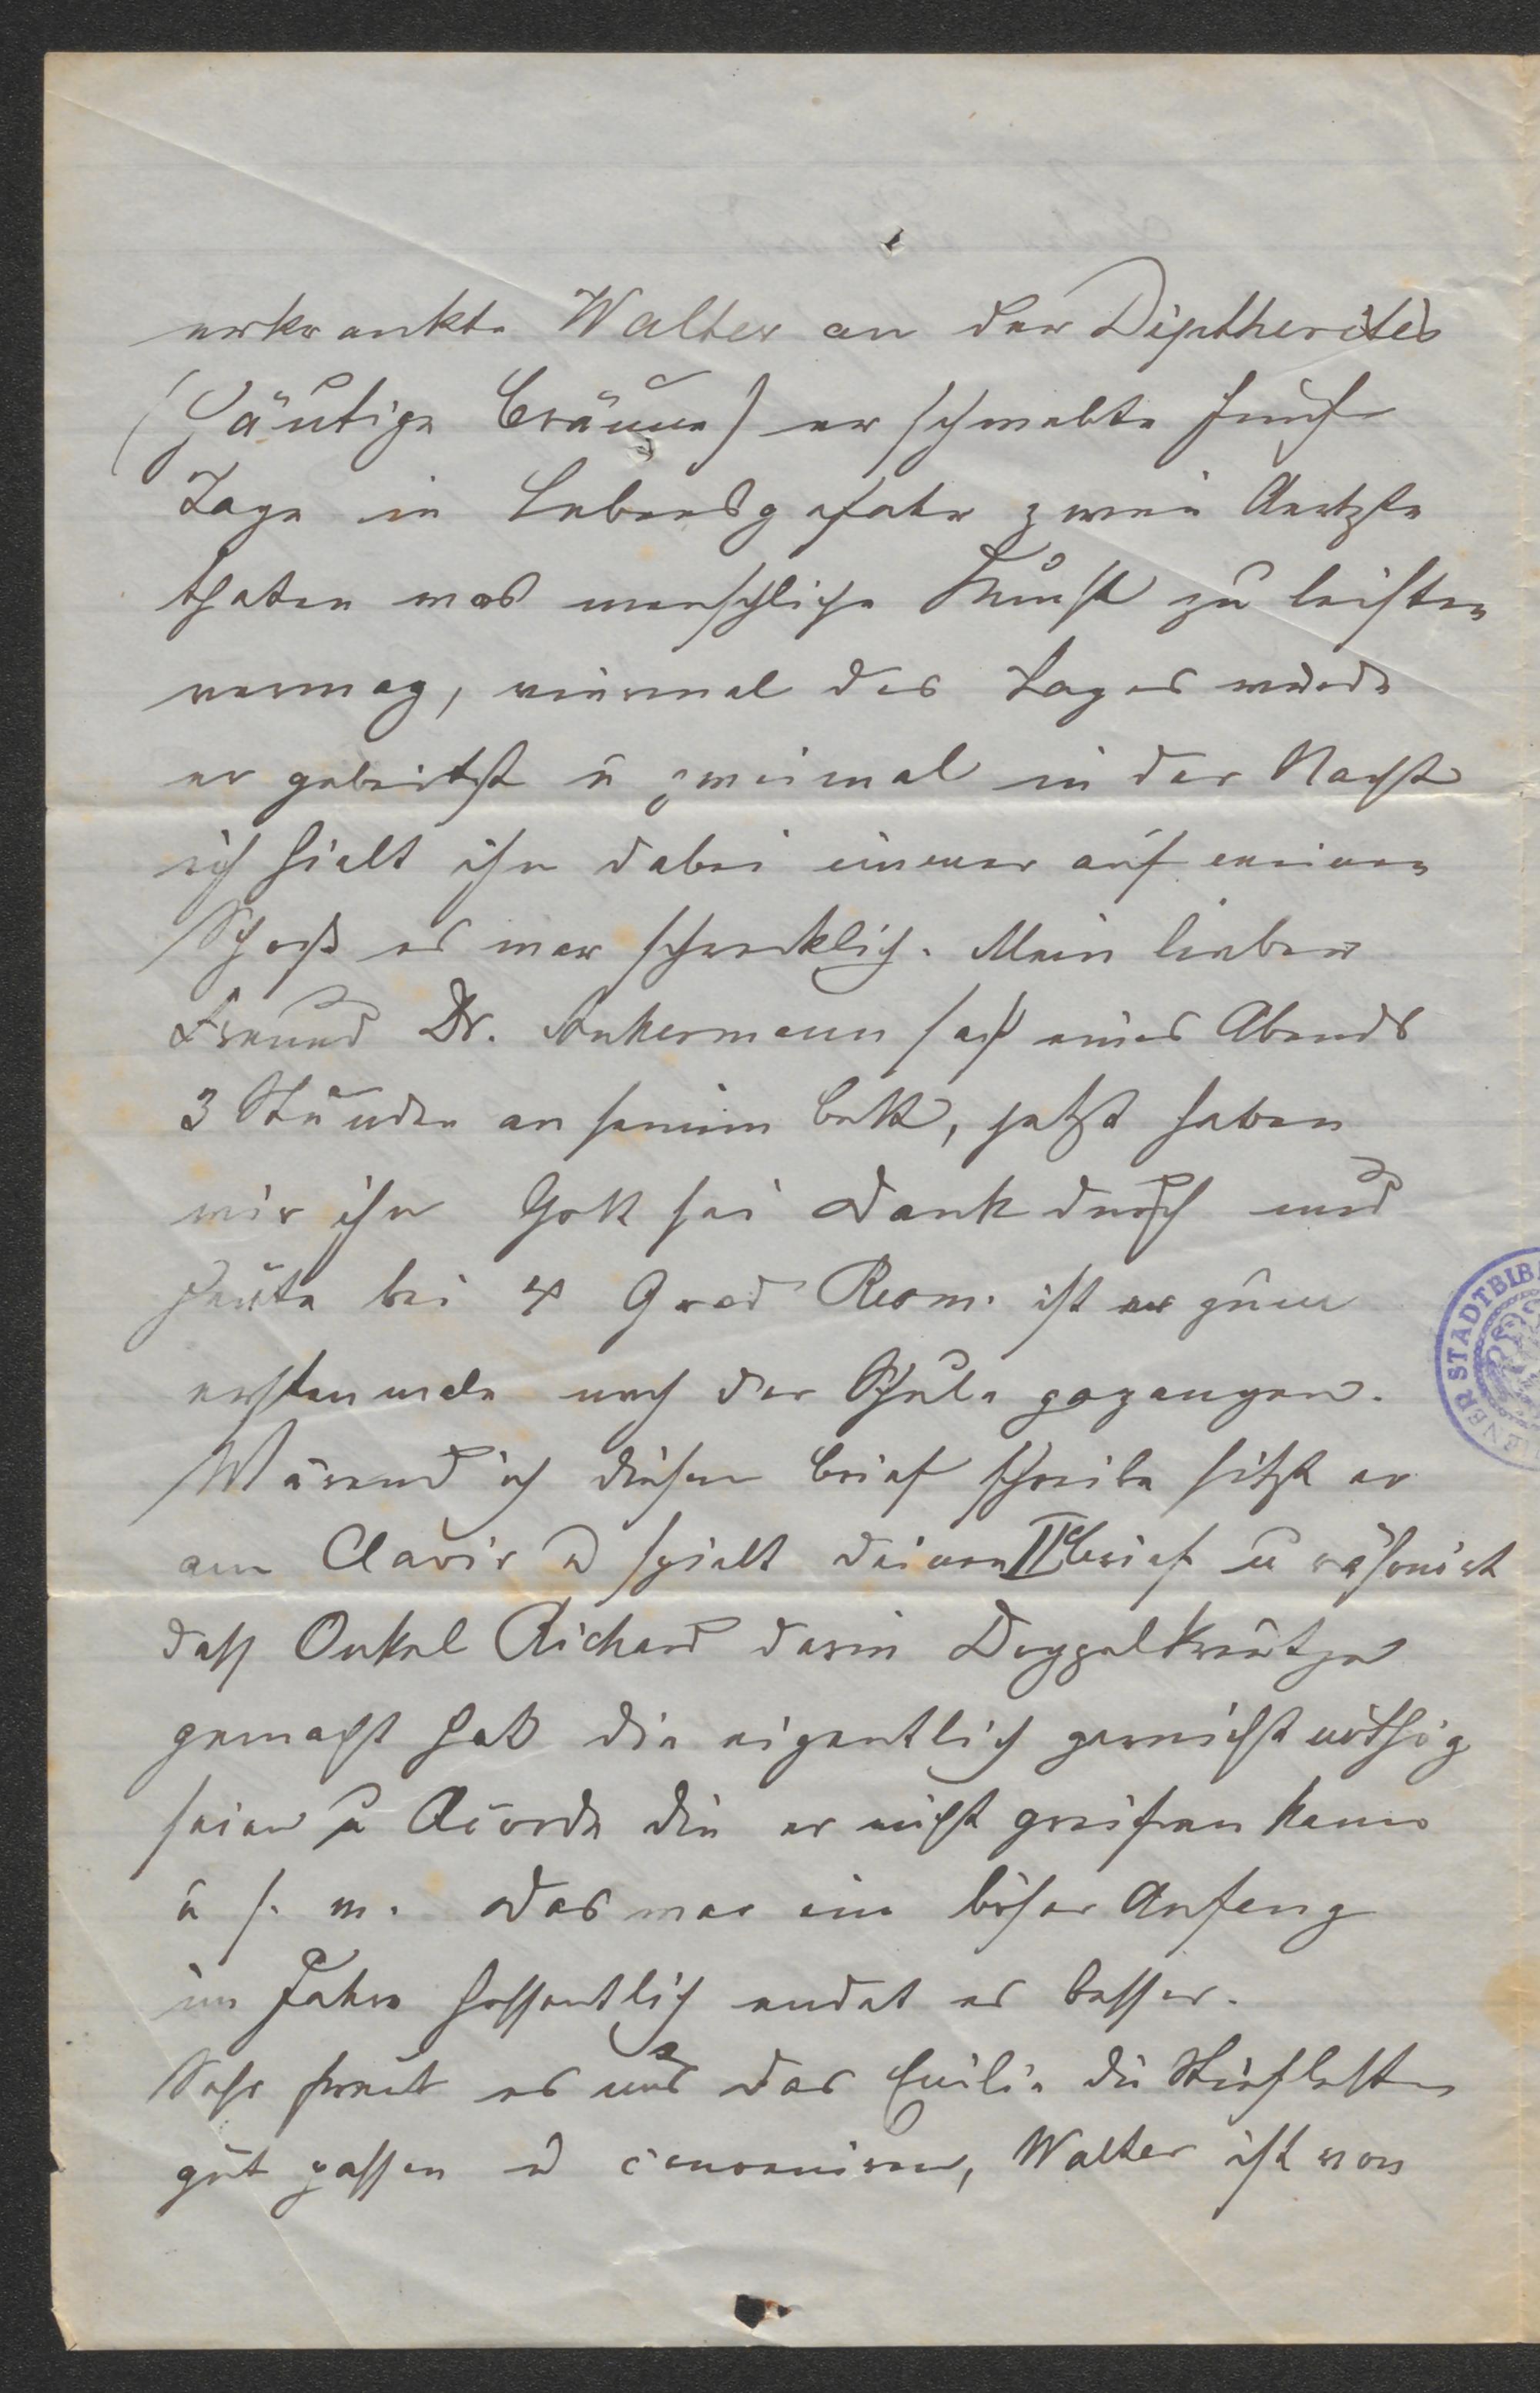 erkrankte Walter an der Diptherites
(häutige Bräune) er schwebte fünf
Tage in Lebensgefahr zwei Aertzte
thaten was menschliche Kunst zu leisten
vermag, viermal des Tages wurde
er gebeitzt u zweimal in der Nacht
ich hielt ihn dabei immer auf meinen
Schoß es war schrecklich. Mein lieber
Freund Dr. Ankermann saß eines Abends
3 Stunden an seinem Bett, jetzt haben
wir ihn Gott sei Dank durch und
heute bei 4 Grad Reom. ist er zum
erstenmale nach der Schule gegangen.
Wärend ich diesen Brief schreibe sitzt er
am Clavir u spielt deinen II Brief u räsonirt
daß Onkel Richard darin Doppelkreutze
gemacht hat die eigentlich garnicht nöthig
seien u Acorde die er nicht greifen kann
u s. w. Das war ein böser Anfang
im Jahre hoffentlich endet es besser.
Sehr freut es uns das Emilie die
gut passen u conveniren, Walter ist von
STADTBIB